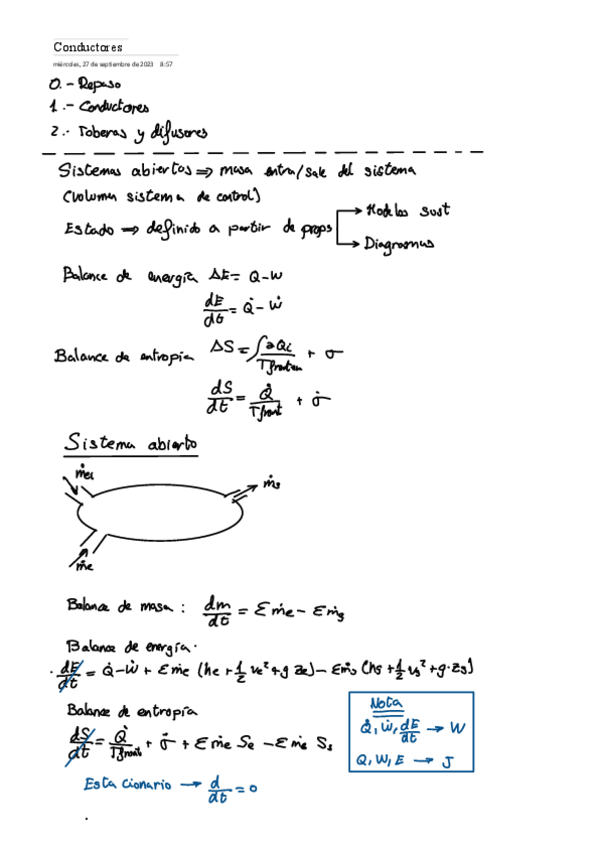 Conductores
miércoles, 27 de septiembre de 2023 8:57
0.- Repaso
1.- Conductores
2.- Toberas y difusores
Sistemas abiertos ⇒ masa entra/sale del sistema
(Volumen sistema de control)
Estado ⇒ definido a partir de props → Modelos sust
→ Diagramas
Balance de energía ΔE = Q-W
dE/dt = Q̇ - Ẇ
Balance de entropía ΔS = ∫ ∂Qi/Tfrontera + σ
dS/dt = Q̇/Tfront + σ̇
Sistema abierto
ṁe1
ṁs
ṁe
Balance de masa: dm/dt = Σṁe - Σṁs
Balance de energía.
· dE/dt = Q̇-Ẇ + Σṁe (he + 1/2 ve² + g ze) - Σṁs (hs + 1/2 vs² + g·zs)
Balance de entropía
dS/dt = Q̇/Tfront + σ̇ + Σṁe Se - Σṁs Ss
Nota
Q̇, Ẇ, dE/dt → W
Q, W, E → J
Estacionario → d/dt = 0